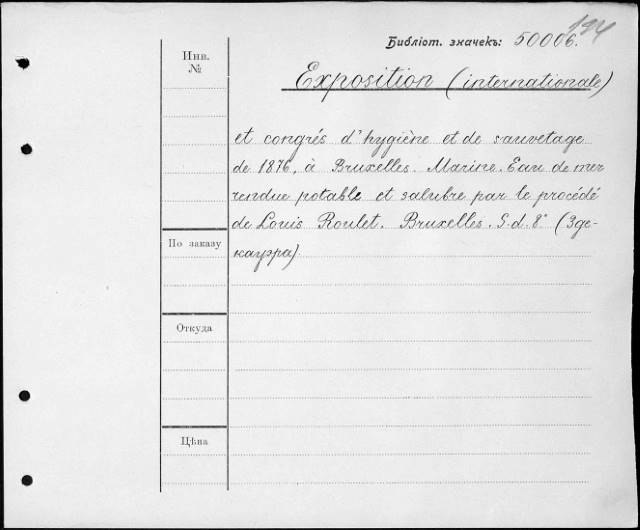 194
Библіот. значекъ: 50006.
Инв. №
Exposition (internationale)
et congrés d'hygiène et de sauvetage
de 1876, à Bruxelles. Marine. Eau de mer
rendue potable et salubre par le procédé
de Louis Roulet. Bruxelles. S.d. 8° (Зде-
кауэра).
По заказу
Откуда
Цѣна